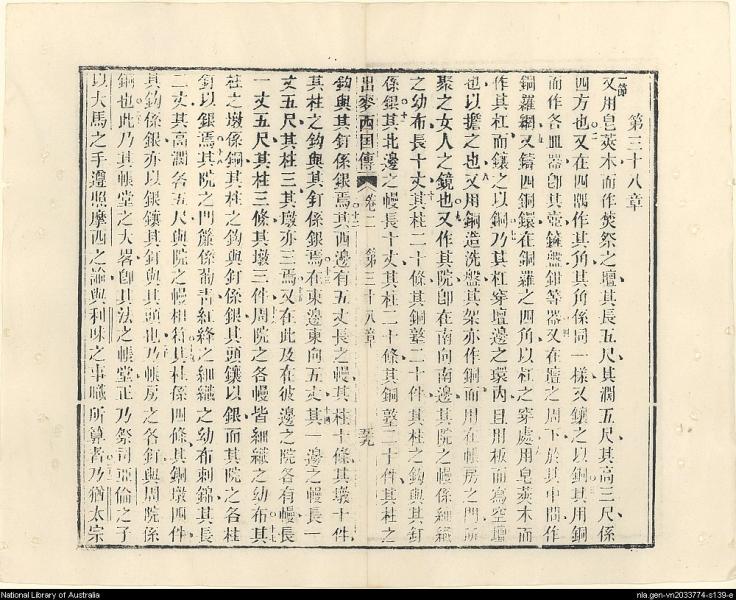 第三十八章
一節
又用皂莢木而作焚祭之壇其長五尺其濶五尺其高三尺係
四方也又在四隅作其角其角係同一樣又鑲之以銅其用銅
而作各皿器卽其壺鏟盤鉗等器又在壇之周下於其中間作
銅羅網又鑄四銅鐶在銅羅之四角以杠之穿處用皂莢木而
作其杠而鑲之以銅乃其杠穿壇邊之環內且用板而為空壇
也以擔之也又用銅造洗盤其架亦作銅而用在帳房之門所
聚之女人之鏡也又作其院卽在南向南邊其院之幔係細織
之幼布長十丈其柱二十條其銅墩二十件其柱之鈎與其釘
係銀其北邊之幔長十丈其柱二十條其銅墩二十件其柱之
出麥西國傳 卷二 第三十八章 至九
鈎與其釘係銀焉其西邊有五丈長之幔其柱十條其墩十件
其柱之鈎與其釘係銀焉在東邊東向五丈其一邊之幔長一
丈五尺其柱三其墩亦三焉又在此及在彼邊之院各有幔長
一丈五尺其柱三條其墩三件周院之各幔皆細織之幼布其
柱之墩係銅其柱之鈎與釘係銀其頭鑲以銀而其院之各柱
釘以銀焉其院之門簾係葡青紅絳之細織之幼布刺錦其長
二丈其高濶各五尺與院之幔相符其柱係四條其銅墩四件
其鈎係銀亦以銀鑲其釘與其頭也乃帳房之各釘與周院係
銅也此乃其帳堂之大畧卽其法之帳堂正乃祭司亞倫之子
以大馬之手遵照摩西之諭與利味之事職所算者乃猶太宗
National Library of Australia
nla.gen-vn2033774-s139-e